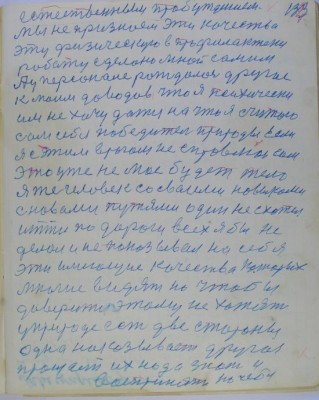 естественным пробуждением
мы не признаем эти качества
эту физическую в профилактики
работу сделано мной самим
А у персонале рождалось другое
к моим доводов что я психически
им не хочу даже на что я считаю
сам себя победител природы Если
я с этим врагом не справлюсь сам
это уже не мое будет тело
я же человек со своими новыми
с новыми путями один не схотел
итти по дороги всех я бы не
делал и не показывал на себя
эти имеющие качества которых
многие видят но чтобы
доверит этому не хотят
у природе сот две стороны
одна наказывает другая
прощает их надо знат и
воспринят на себя